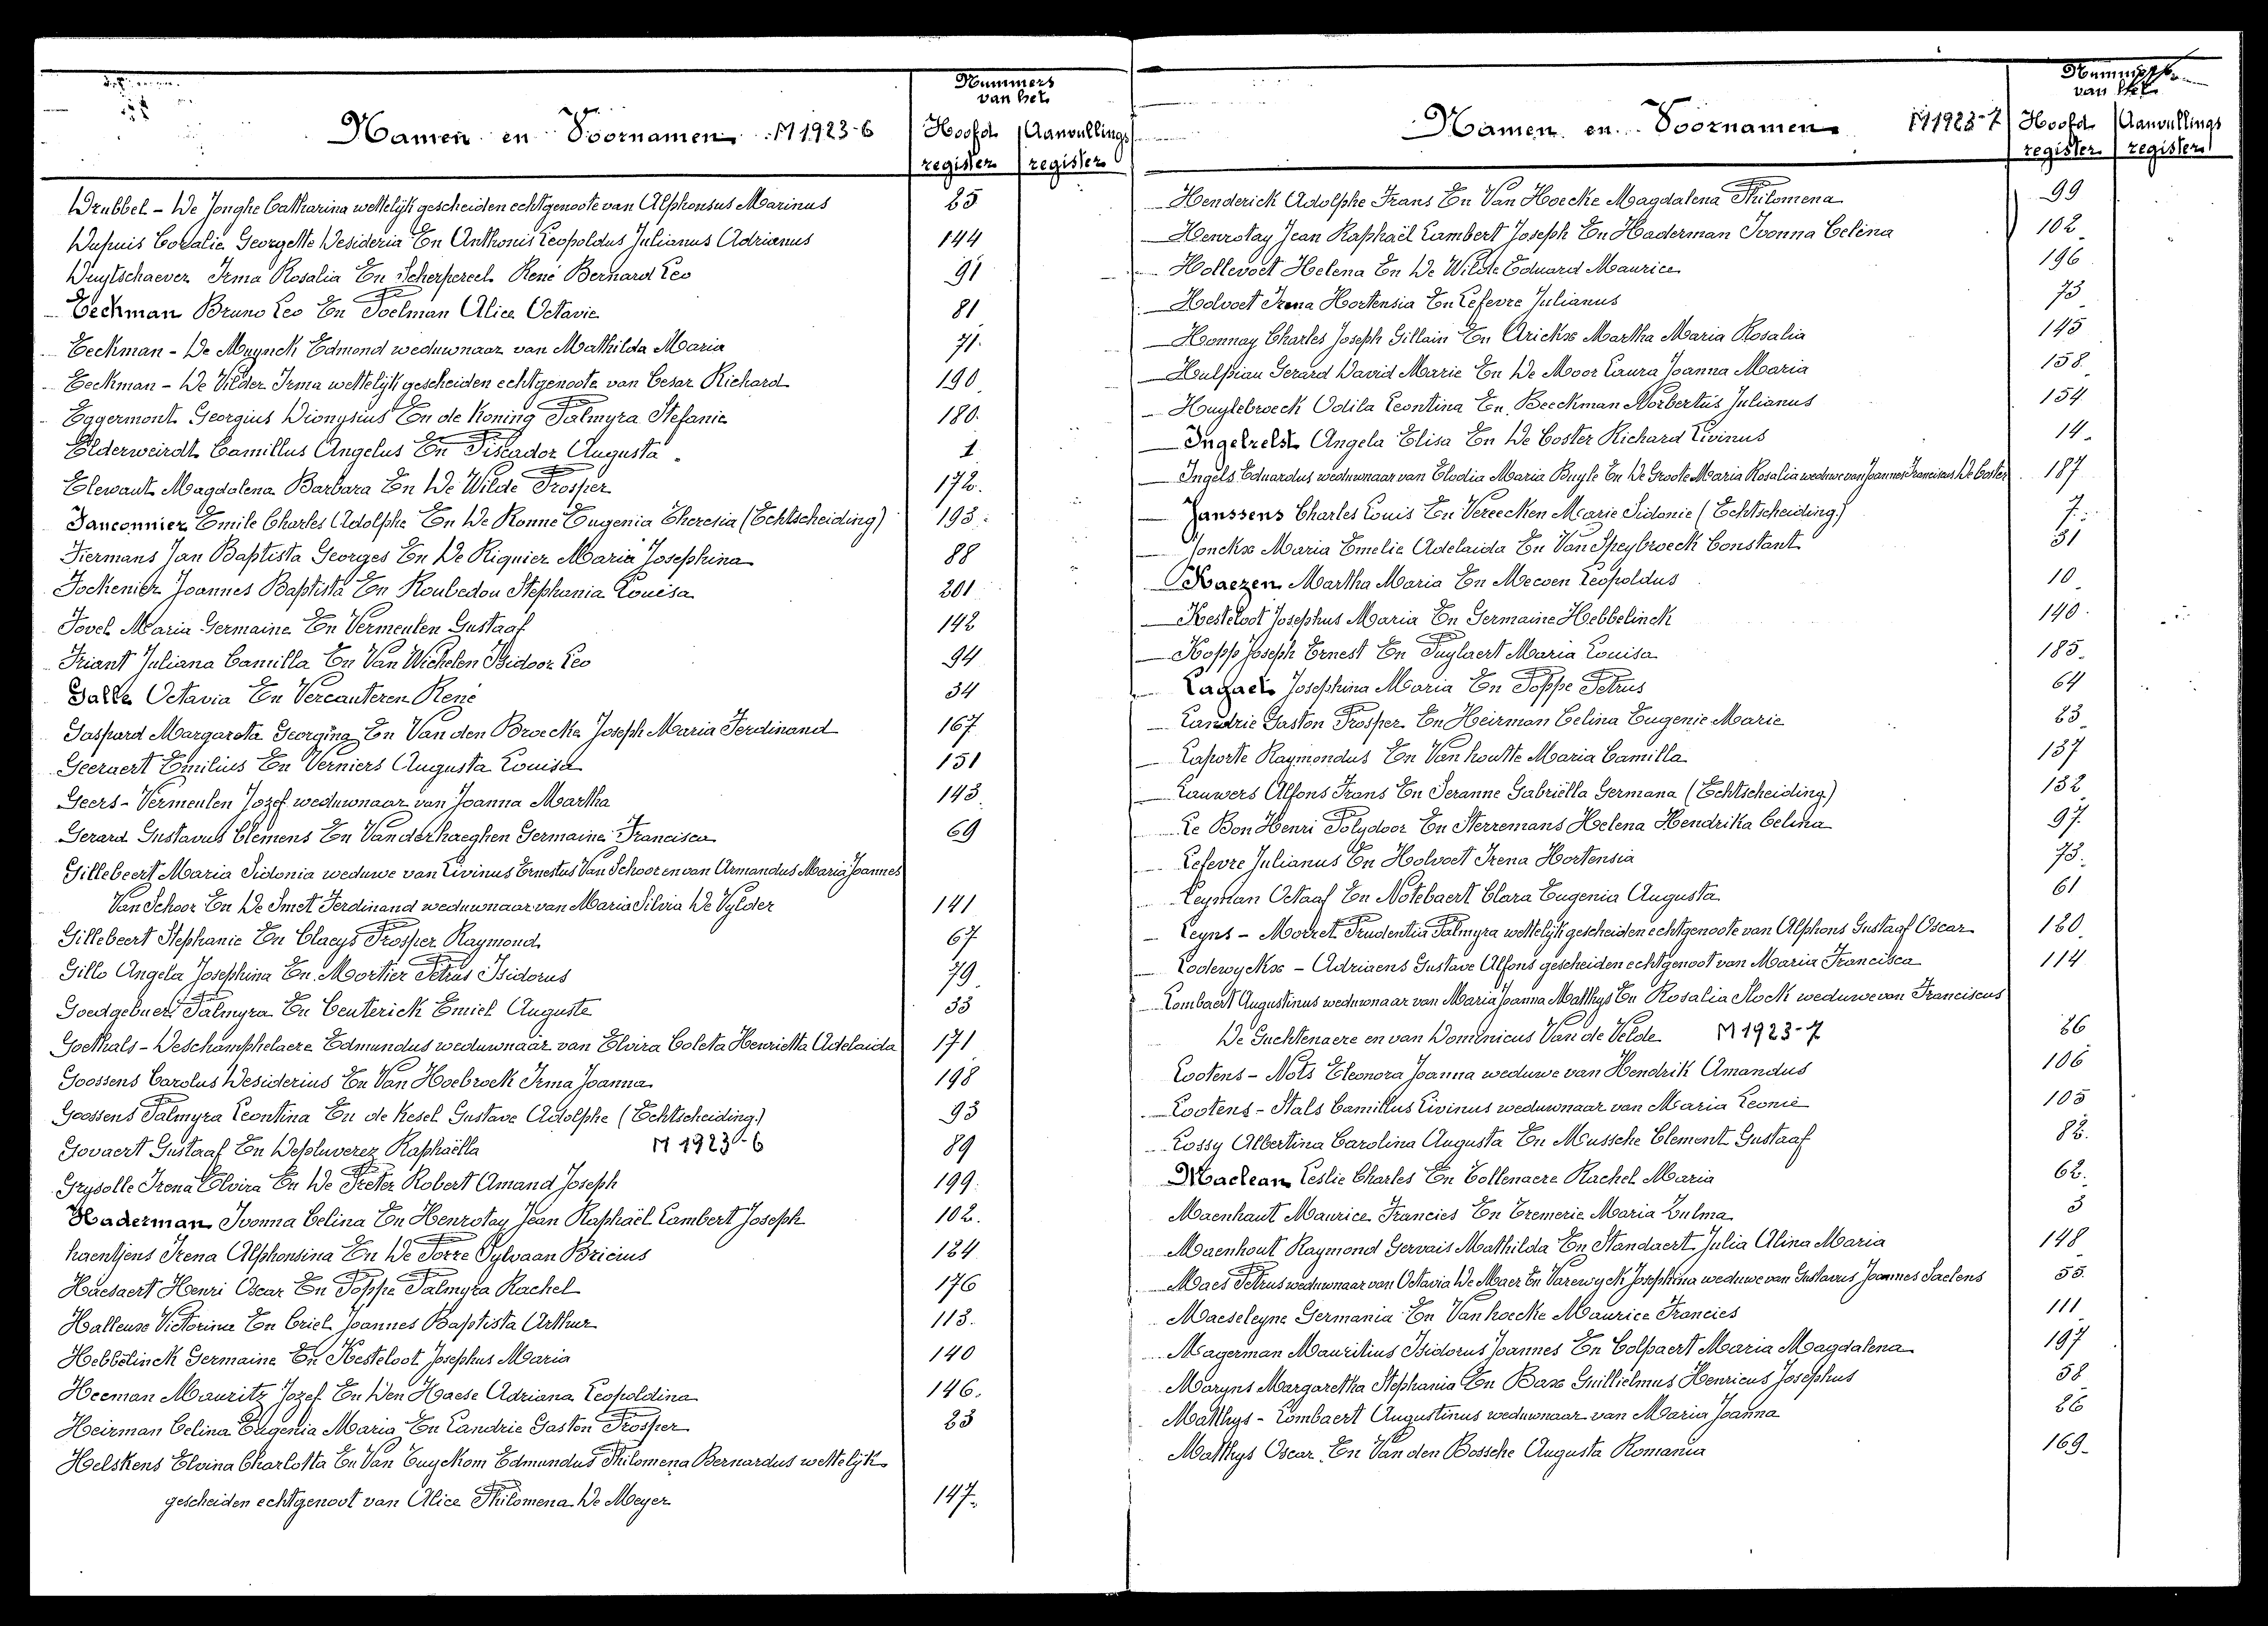 Namen en Voornamen M 1923-6
Nummers van het
Hoofd register
Aanvullings register
Drubbel - De Jonghe Catharina wettelijk gescheiden echtgenoote van Alphonsus Marinus 25
Dupuis Coralie Georgette Desideria En Anthonis Leopoldus Julianus Adrianus 144
Duytschaever Irma Rosalia En Scherpereel René Bernard Leo 91
Eeckman Bruno Leo En Poelman Alice Octavie 81
Eeckman - De Muynck Edmond weduwnaar van Mathilda Maria 71
Eeckman - De Vilder Irma wettelijk gescheiden echtgenoote van Cesar Richard 190
Eggermont Georgius Dionysius En de Koning Palmyra Stefanie 180
Elderweirdt Camillus Angelus En Piscador Augusta 1
Elewaut Magdalena Barbara En De Wilde Prosper 172
Fanconnier Emile Charles Adolphe En De Ronne Eugenia Theresia (Echtscheiding) 193
Fiermans Jan Baptista Georges En De Riquier Maria Josephina 88
Fockenier Joannes Baptista En Roubedou Stephania Louisa 201
Fovel Maria Germaine En Vermeulen Gustaaf 142
Friant Juliana Camilla En Van Wichelen Isidoor Leo 94
Galle Octavia En Vercauteren René 34
Gaspard Margareta Georgina En Van den Broecke Joseph Maria Ferdinand 167
Geeraert Emilius En Verniers Augusta Louisa 151
Geers - Vermeulen Jozef weduwnaar van Joanna Martha 143
Gerard Gustavus Clemens En Vanderhaeghen Germaine Francisca 69
Gillebeert Maria Sidonia weduwe van Livinus Ernestus Van Schoor en van Armandus Maria Joannes
Van Schoor En De Smet Ferdinand weduwnaar van Maria Silvia De Vylder 141
Gillebeert Stephanie En Claeys Prosper Raymond 67
Gillo Angela Josephina En Mortier Petrus Isidorus 79
Goedgebuer Palmyra En Ceuterick Emiel Auguste 33
Goethals - Deschamphelaere Edmundus weduwnaar van Elvira Coleta Henrietta Adelaida 171
Goossens Carolus Desiderius En Van Hoebrock Irma Joanna 198
Goossens Palmyra Leontina En de Kesel Gustave Adolphe (Echtscheiding) 93
Govaert Gustaaf En Depluverez Raphaëlla M 1923-6 89
Grysolle Irena Elvira En De Preter Robert Amand Joseph 199
Haderman Ivonna Celina En Henrotay Jean Raphaël Lambert Joseph 102
haentjens Irena Alphonsina En De Porre Sylvaan Bricius 124
Haesaert Henri Oscar En Poppe Palmyra Rachel 176
Halleux Victorine En Criel Joannes Baptista Arthur 113
Hebbelinck Germaine En Kesteloot Josephus Maria 140
Heeman Mauritz Jozef En Den Haese Adriana Leopoldina 146
Heirman Celina Eugenia Maria En Landrie Gaston Prosper 23
Helskens Elvina Charlotta En Van Cuyckom Edmundus Philomena Bernardus wettelijk
gescheiden echtgenoot van Alice Philomena De Meyer 147
Namen en Voornamen M 1923-7
Nummers van het
Hoofd register
Aanvullings register
Henderick Adolphe Frans En Van Hoecke Magdalena Philomena 99
Henrotay Jean Raphaël Lambert Joseph En Haderman Ivonna Celina 102
Hollevoet Helena En De Wilde Eduard Maurice 196
Holvoet Irena Hortensia En Lefevre Julianus 73
Honnay Charles Joseph Gillain En Arickx Martha Maria Rosalia 145
Hulpiau Gerard David Marie En De Moor Laura Joanna Maria 158
Huylebroeck Odila Leontina En Beeckman Norbertus Julianus 154
Ingelrelst Angela Elisa En De Coster Richard Livinus 14
Ingels Eduardus weduwnaar van Elodia Maria Buyle En De Groote Maria Rosalia weduwe van Joannes Franciscus De Coster 187
Janssens Charles Louis En Vereecken Marie Sidonie (Echtscheiding) 7
Jonckx Maria Emelie Adelaida En Van Speybroeck Constant 31
Kaezen Martha Maria En Mecoen Leopoldus 10
Kesteloot Josephus Maria En Germaine Hebbelinck 140
Kopp Joseph Ernest En Puylaert Maria Louisa 185
Lagaet Josephina Maria En Poppe Petrus 64
Landrie Gaston Prosper En Heirman Celina Eugenie Marie 23
Laporte Raymondus En Vanhoutte Maria Camilla 137
Lauwers Alfons Frans En Seranne Gabriëlla Germana (Echtscheiding) 132
Le Bon Henri Polydoor En Sterremans Helena Hendrika Celina 97
Lefevre Julianus En Holvoet Irena Hortensia 73
Leyman Octaaf En Notebaert Clara Eugenia Augusta 61
Leyns - Morret Prudentia Palmyra wettelijk gescheiden echtgenoote van Alphons Gustaaf Oscar 120
Lodewyckx - Adriaens Gustave Alfons gescheiden echtgenoot van Maria Francisca 114
Lombaert Augustinus weduwnaar van Maria Joanna Matthys En Rosalia Stock weduwe van Franciscus
De Guchtenaere en van Dominicus Van de Velde M 1923-7 26
Lootens - Nots Eleonora Joanna weduwe van Hendrik Amandus 106
Lootens - Stals Camillus Livinus weduwnaar van Maria Leonie 105
Lossy Albertina Carolina Augusta En Mussche Clement Gustaaf 82
Maclean Leslie Charles En Collenaere Rachel Maria 62
Maenhaut Maurice Francies En Cremerie Maria Zulma 3
Maenhout Raymond Gervais Mathilda En Standaert Julia Alina Maria 148
Maes Petrus weduwnaar van Octavia De Maer En Varewyck Josephina weduwe van Gustavus Joannes Saelens 55
Maeseleyne Germania En Vanhoecke Maurice Francies 111
Magerman Mauritius Isidorus Joannes En Colpaert Maria Magdalena 197
Maryns Margaretha Stephania En Bax Guillielmus Henricus Josephus 58
Matthys - Lombaert Augustinus weduwnaar van Maria Joanna 26
Matthys Oscar En Van den Bossche Augusta Romania 169